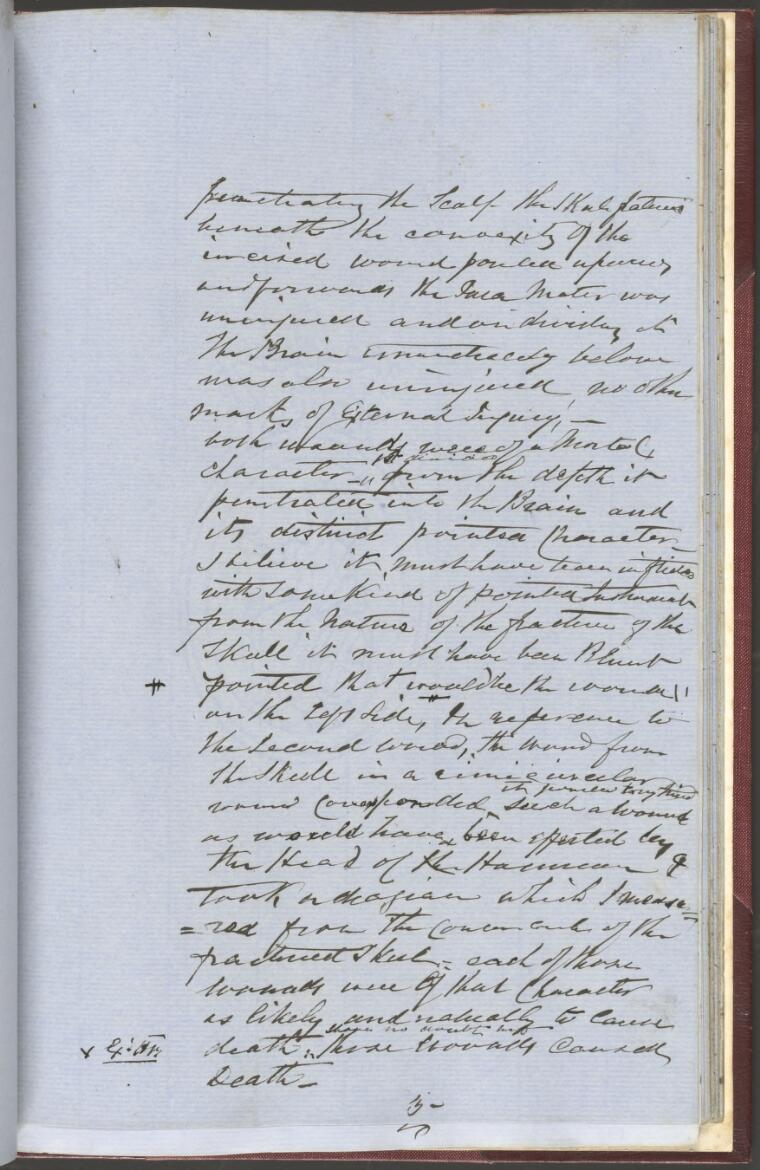 penetrating the Scalf the Skull
beneath the convexity of the
incised wound pointed
and forwards the Dura Mater was
uninjured and on dividing it
the Brain immediately below
was also uninjured, no other
marks of External Injury, —
both wounds were of a Mortal
character — from the depth it
penetrated into the Brain and
its distinct pointed Character —
I believe it must have been inflicted
with some kind of pointed Instrument
from the Nature of the fracture of the
Skull it must have been Blunt
pointed that would be the wound
on the Left Side, In reference to
the Second wound, the wound from
the Skull in a
wound corresponded such a wound
as would have been effected by
the Head of the Hammer &
took a diagram which I measu=
=red from the of the
fractured Skull = each of those
wounds were of that Character
as likely and naturally to cause
have no doubt
death. those wounds caused
Death —